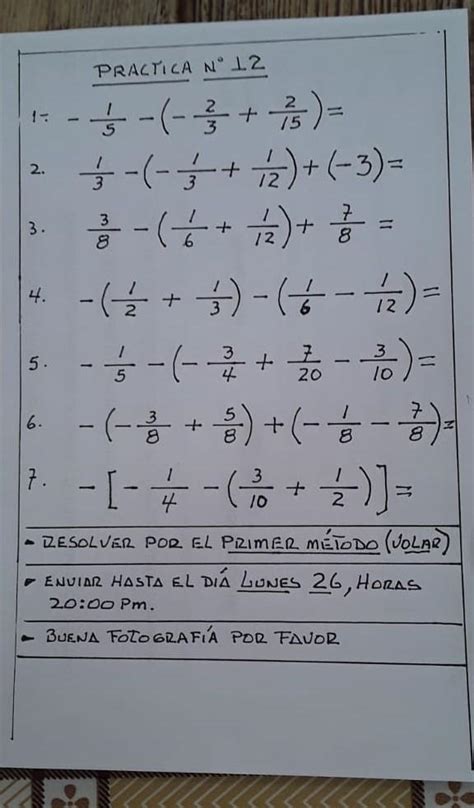 PRACTICA Nº 12
1.- - 1/5 - (- 2/3 + 2/15) =
2. 1/3 - (- 1/3 + 1/12) + (-3) =
3. 3/8 - (1/6 + 1/12) + 7/8 =
4. - (1/2 + 1/3) - (1/6 - 1/12) =
5. - 1/5 - (- 3/4 + 7/20 - 3/10) =
6. - (- 3/8 + 5/8) + (- 1/8 - 7/8) =
7. - [- 1/4 - (3/10 + 1/2)] =
- RESOLVER POR EL PRIMER MÉTODO (VOLAR)
- ENVIAR HASTA EL DIÁ LUNES 26, HORAS
20:00 Pm.
- BUENA FOTOGRAFÍA POR FAVOR